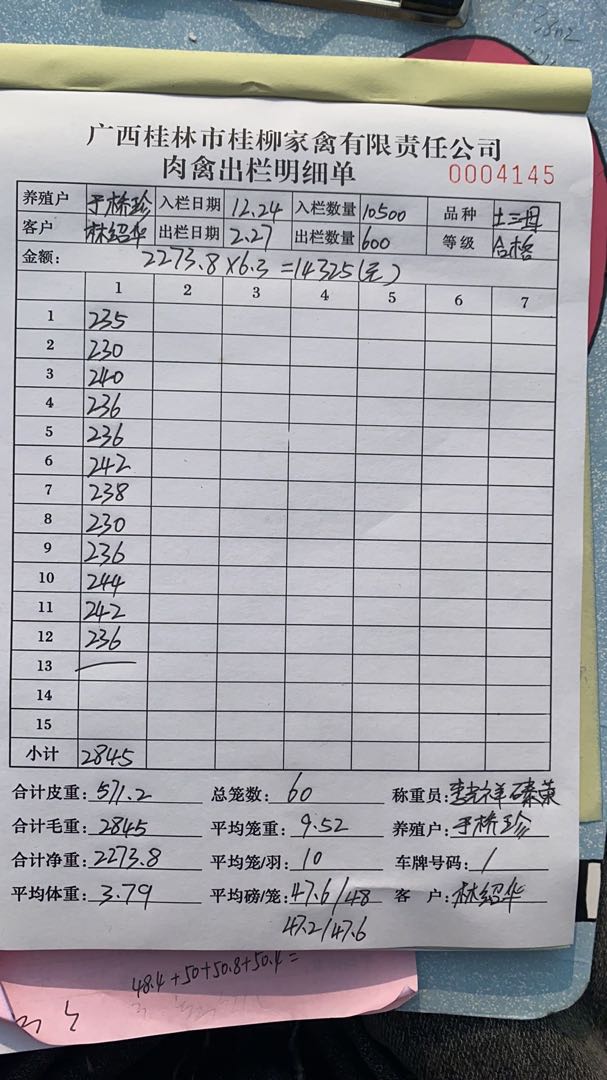 广西桂林市桂柳家禽有限责任公司
肉禽出栏明细单 0004145
养殖户 于桥珍 入栏日期 12.24 入栏数量 10500 品种 土三母
客户 林绍华 出栏日期 2.27 出栏数量 600 等级 合格
金额: 2273.8×6.3=14325(元)
1 2 3 4 5 6 7
1 235
2 230
3 240
4 236
5 236
6 242
7 238
8 230
9 236
10 244
11 242
12 236
13
14
15
小计 2845
合计皮重: 571.2 总笼数: 60 称重员:
合计毛重: 2845 平均笼重: 9.52 养殖户: 于桥珍
合计净重: 2273.8 平均笼/羽: 10 车牌号码: /
平均体重: 3.79 平均磅/笼: 47.6/48 客户: 林绍华
47.2/47.6
48.4+50+50.8+50.4=